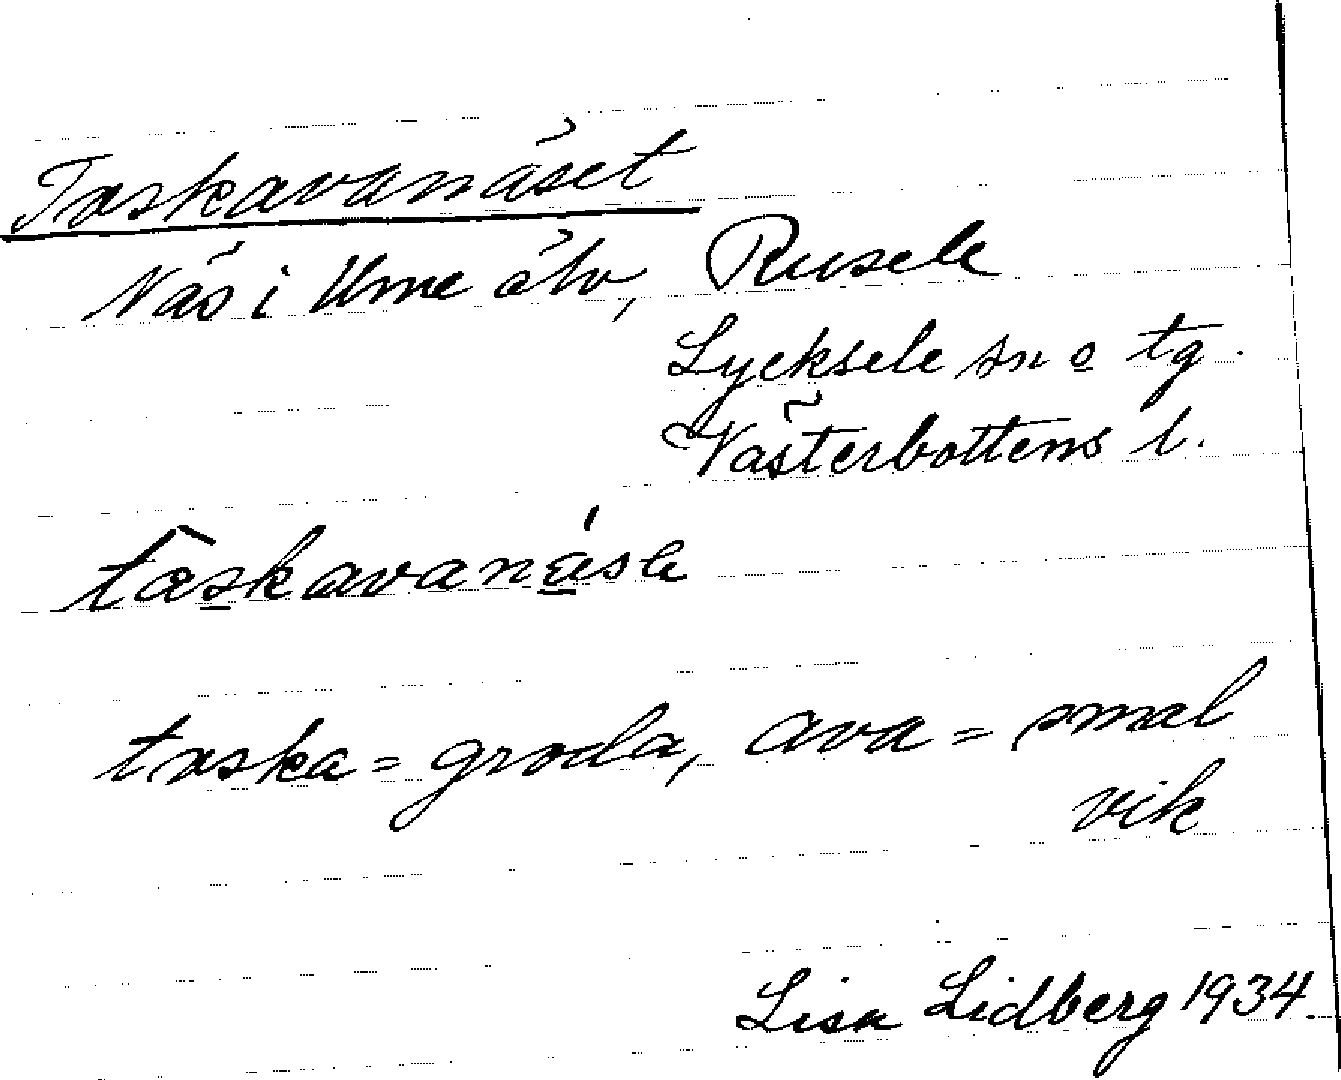 Taskavanäset
Näs i Ume älv, Rusele
Lycksele sn o tg.
Västerbottens l.
tas̲kavanä̲se
taska = groda, ava = smal
vik
Lisa Lidberg 1934